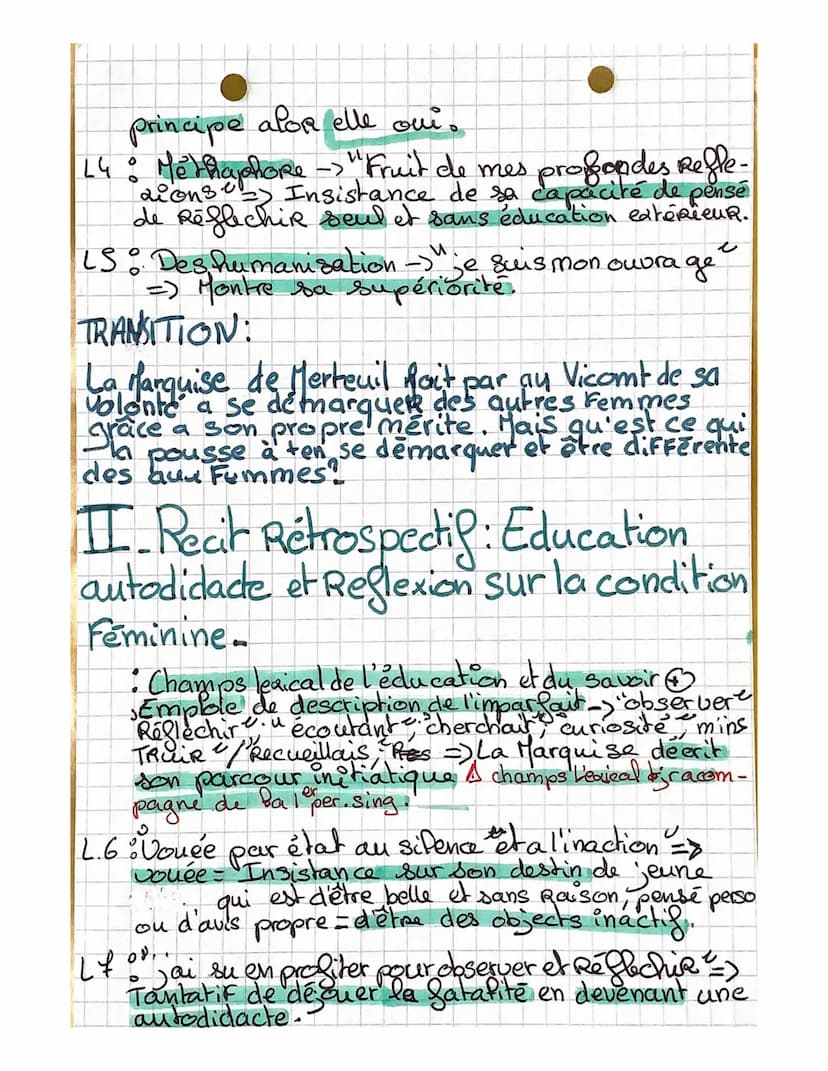 principe alor elle oui.
L4 : Méthaphore -> "Fruit de mes profondes Refle-
xions" => Insistance de sa capacité de pensé
de Réflechir seul et sans éducation extérieur.
L5 : Deshumanisation -> "je suis mon ouvrage"
=> Montre sa supériorité.
TRANSITION:
La Marquise de Merteuil fait par au Vicomt de sa
volonté a se démarquer des autres Femmes
grâce a son propre mérite. Mais qu'est ce qui
la pousse à ten se démarquer et être différente
des aux Femmes?
II - Recit Rétrospectif: Education
autodidacte et Reflexion sur la condition
Féminine -
: Champs lexical de l'éducation et du savoir +
Emploie de description de l'imparfait -> "observer"
Réflechir", "écoutant", "cherchait", "curiosité", "m'ins
TRuire"/"Recueillais," => La Marquise décrit
son parcour initiatique Δ champs lexical tjr acom-
pagné de la 1er per. sing.
L.6 : Vouée par état au silence et a l'inaction" =>
vouée = Insistance sur son destin de jeune
qui est d'être belle et sans Raison, pensé perso
ou d'avis propre = d'être des objects inactif.
L7 : "j'ai su en profiter pour observer et Réflechir" =>
Tantatif de déjouer la fatalité en devenant une
autodidacte.